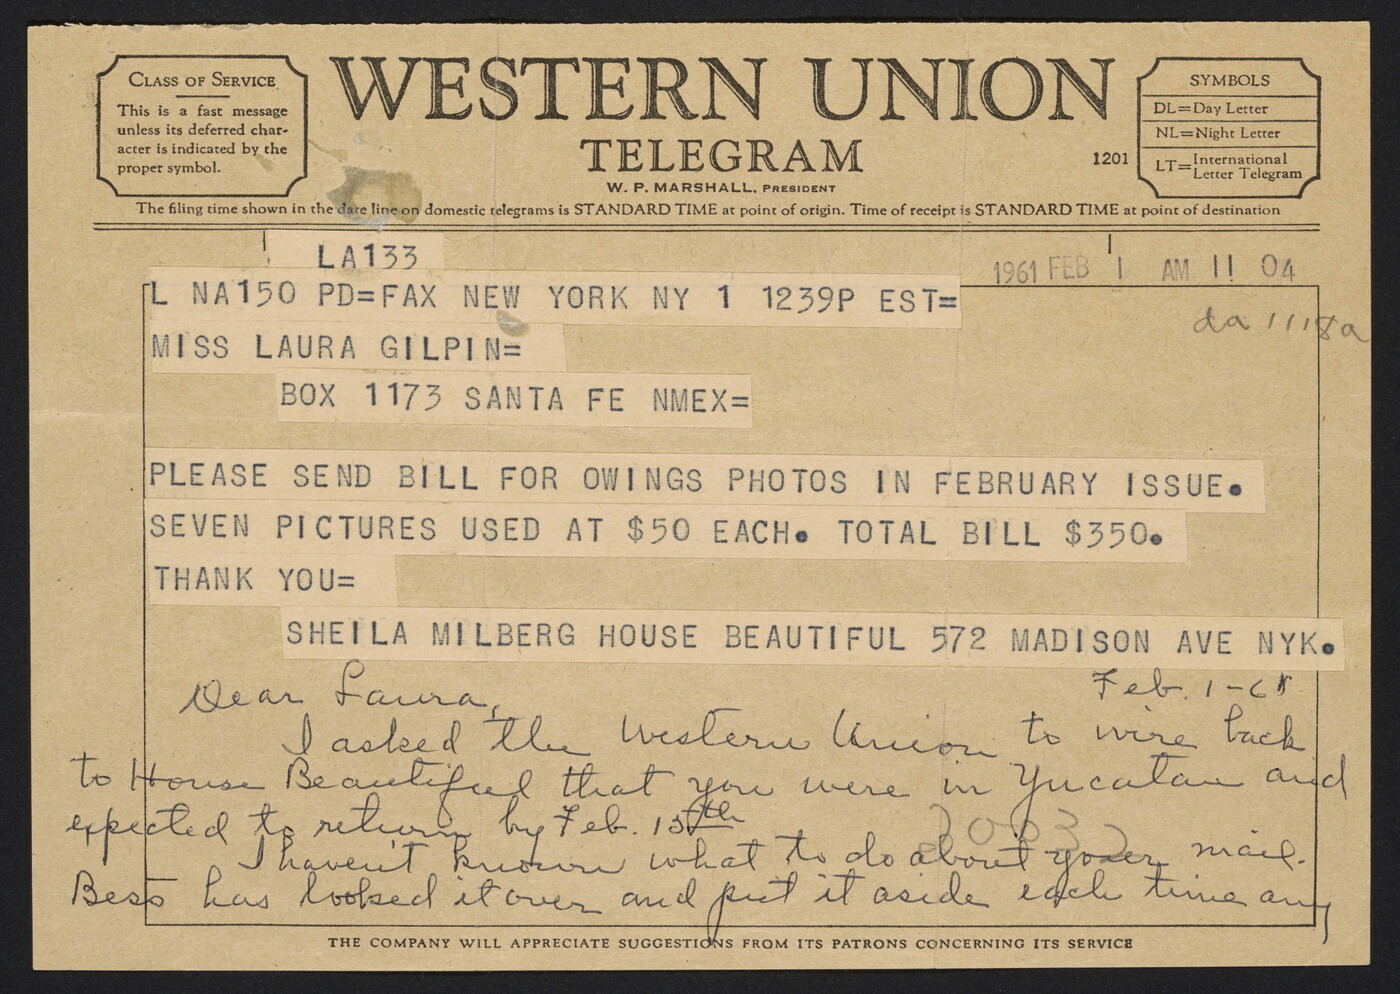 CLASS OF SERVICE
This is a fast message
unless its deferred char-
acter is indicated by the
proper symbol.
WESTERN UNION
TELEGRAM
W. P. MARSHALL, PRESIDENT
1201
SYMBOLS
DL=Day Letter
NL=Night Letter
LT=International Letter Telegram
The filing time shown in the date line on domestic telegrams is STANDARD TIME at point of origin. Time of receipt is STANDARD TIME at point of destination
LA133
1961 FEB 1 AM 11 04
L NA150 PD=FAX NEW YORK NY 1 1239P EST=
da 1118a
MISS LAURA GILPIN=
BOX 1173 SANTA FE NMEX=
PLEASE SEND BILL FOR OWINGS PHOTOS IN FEBRUARY ISSUE.
SEVEN PICTURES USED AT $50 EACH. TOTAL BILL $350.
THANK YOU=
SHEILA MILBERG HOUSE BEAUTIFUL 572 MADISON AVE NYK.
Feb. 1-61
Dear Laura,
I asked the Western Union to wire back
to House Beautiful that you were in Yucatan and
expected to return by Feb. 15th
I haven't known what to do about your mail.
Bess has looked it over and put it aside each time any
THE COMPANY WILL APPRECIATE SUGGESTIONS FROM ITS PATRONS CONCERNING ITS SERVICE